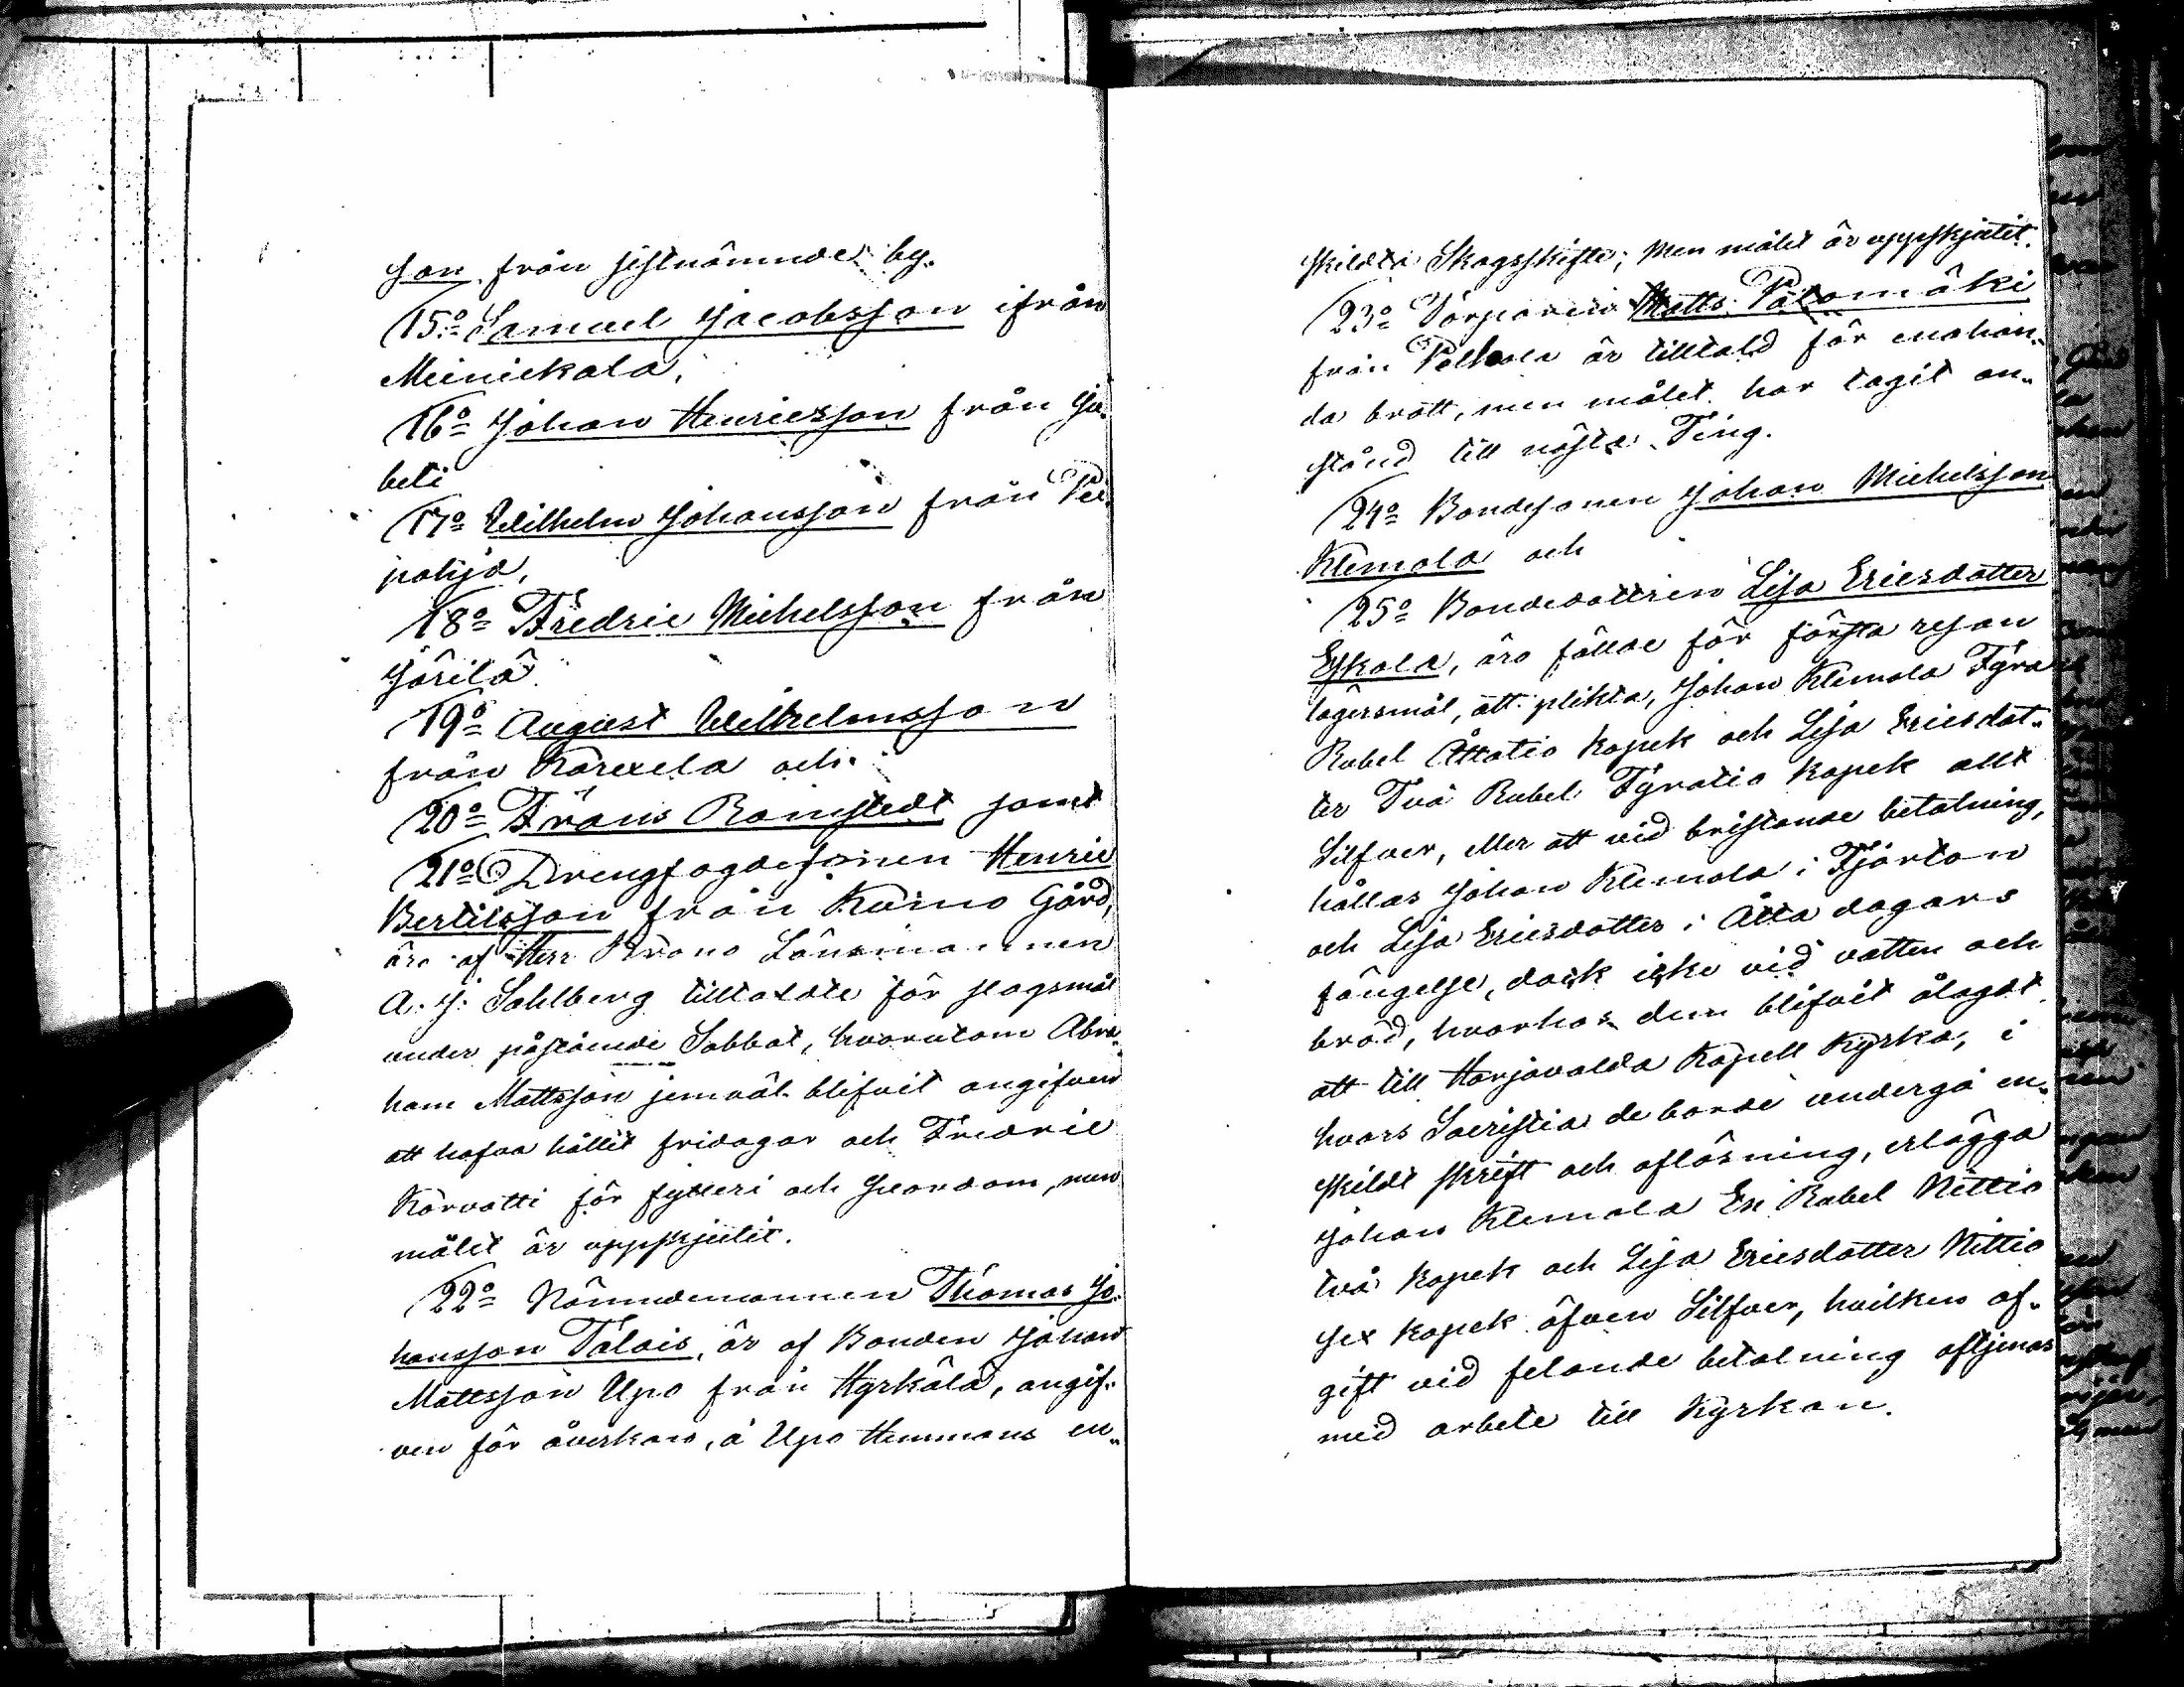 son från sistnämnde by.
15:o Samuel Jacobsson ifrån
Meinickala,
16:o Johan Henricsson från Ja-
beti
17:o Wilhelm Johansson från Pei-
pohja,
18:o Fredric Michelsson från
Järilä
19:o August Wilhelmsson
från Kareela och
20:o Frans Ramstedt samt
21:o Drengfogdesonen Henric
Bertilsson från Kurno Gård,
äro af Herr Krono Länsmannen
A. J. Sahlberg tilltalde för slagsmål
under påstående Sabbat, hvarutom Abra-
ham Mattsson jemväl blifvit angifven
att hafva hållit fridagar och Fredric
Korvatti för fylleri och Svordom, men
målet är uppskjutit.
22:o Nämndemannen Thomas Jo-
hansson Talois, är af Bonden Johan
Mattsson Upo från Hyrkölä, angif-
ven för åverkan, å Upo Hemmans en-
skildta Skogsskifte; Men målet är uppskjutit.
23:o Torparen Matts Palomäki
från är tilltald för enahan-
da brott, men målet har tagit an-
stånd till nästa Ting.
24:o Bondesonen Johan Michelsson
Klemola och
25:o Bondedottren Lisa Ericsdotter
Eskola, äro fällde för första resan
lägersmål, att plikta, Johan Klemola Fyra
Rubel Åttatio kopek och Lisa Ericsdot-
ter Två Rubel Fyratio kopek allt
Silfver, eller att vid bristande betalning,
hållas Johan Klemola i Fjorton
och Lisa Ericsdotter i Åtta dagars
fängelse, dock icke vid vatten och
bröd, hvarhos dem blifvit ålagdt
att till Harjavalda Kapell Kyrka, i
hvars Sacristia de borde undergå en-
skildt skrift och aflösning, erlägga
Johan Klemola En Rubel Nittio
två kopek och Lisa Ericsdotter Nittio
sex kopek äfven Silfver, hvilken af-
gift vid felande betalning aftjenas
med arbete till Kyrkan.